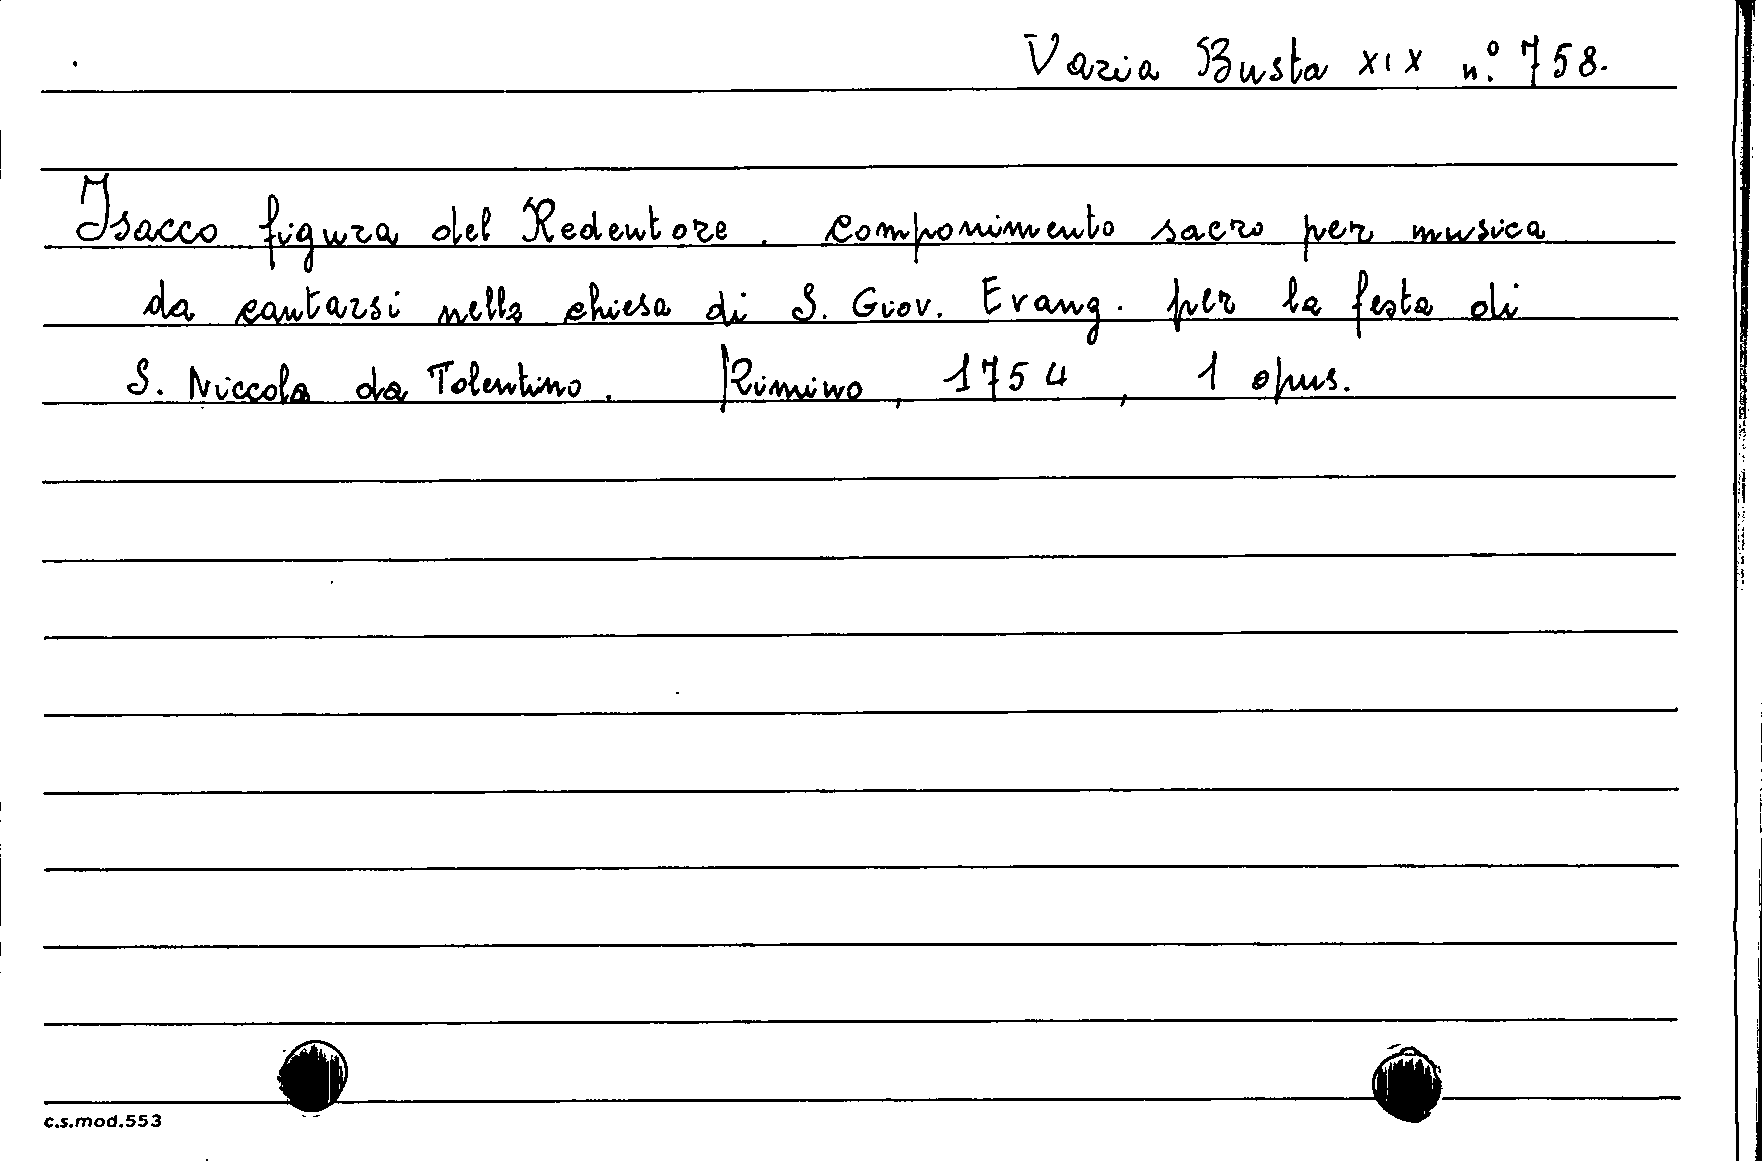 Varia Busta XIX n.° 758.
Isacco figura del Redentore. Componimento sacro per musica
da cantarsi nella chiesa di S. Giov. Evang. per la festa di
S. Niccola da Tolentino. Rimino, 1754, 1 opus.
c.s.mod.553